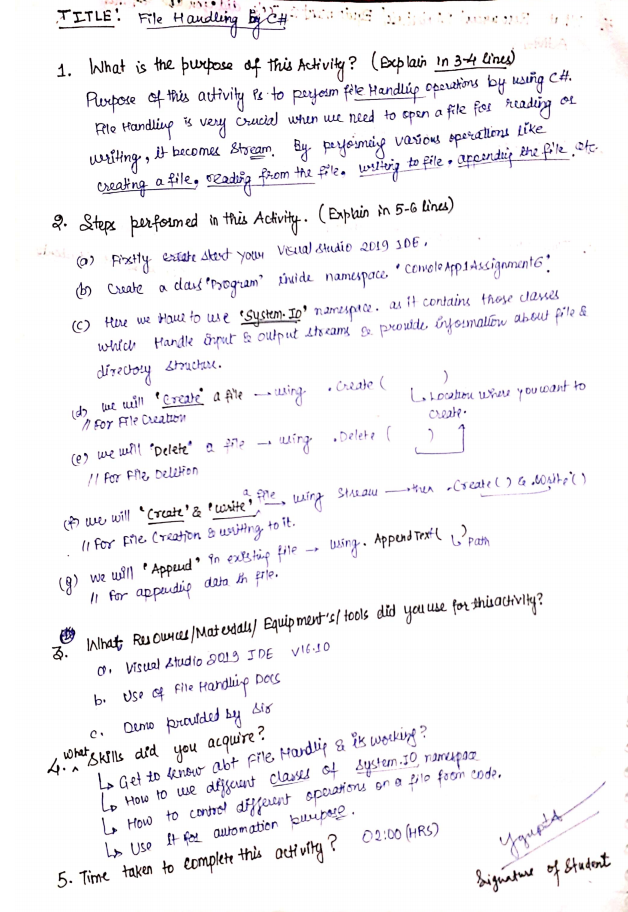 TITLE: File Handling by C#
1. What is the purpose of this Activity? (Explain in 3-4 lines)
Purpose of this activity is to perform file Handling operations by using C#.
File Handling is very crucial when we need to open a file for reading or
writing, it becomes Stream. By performing various operations like
creating a file, reading from the file, writing to file, appending the file, etc.
2. Steps performed in this Activity. (Explain in 5-6 lines)
(a) Firstly create start your Visual Studio 2019 IDE.
(b) Create a class "Program" inside namespace "ConsoleApp1Assignment6".
(c) Here we Have to use 'System.IO' namespace. as it contains those classes
which Handle input & output streams & provide information about file &
directory structure.
(d) we will "Create" a file → using .Create ( )
↳ Location where you want to
create.
// For File Creation
(e) we will "Delete" a file → using .Delete ( )
// For File Deletion
(f) we will 'Create' & 'write' a file → using Stream → then .Create( ) & .Write( )
// For File Creation & writing to it.
(g) we will "Append" in existing file → using .AppendText( )
↳ Path
// For appending data in file.
3. What Resources/Materials/Equipment's/tools did you use for this activity?
a. Visual Studio 2019 IDE v16.10
b. Use of File Handling Docs
c. Demo provided by Sir
4. What skills did you acquire?
↳ Get to know abt File Handlig & its working?
↳ How to use different classes of System.IO namespace
↳ How to control different operations on a file from code.
↳ Use it for automation purpose.
5. Time taken to complete this activity? 02:00 (HRS)
Signature of Student